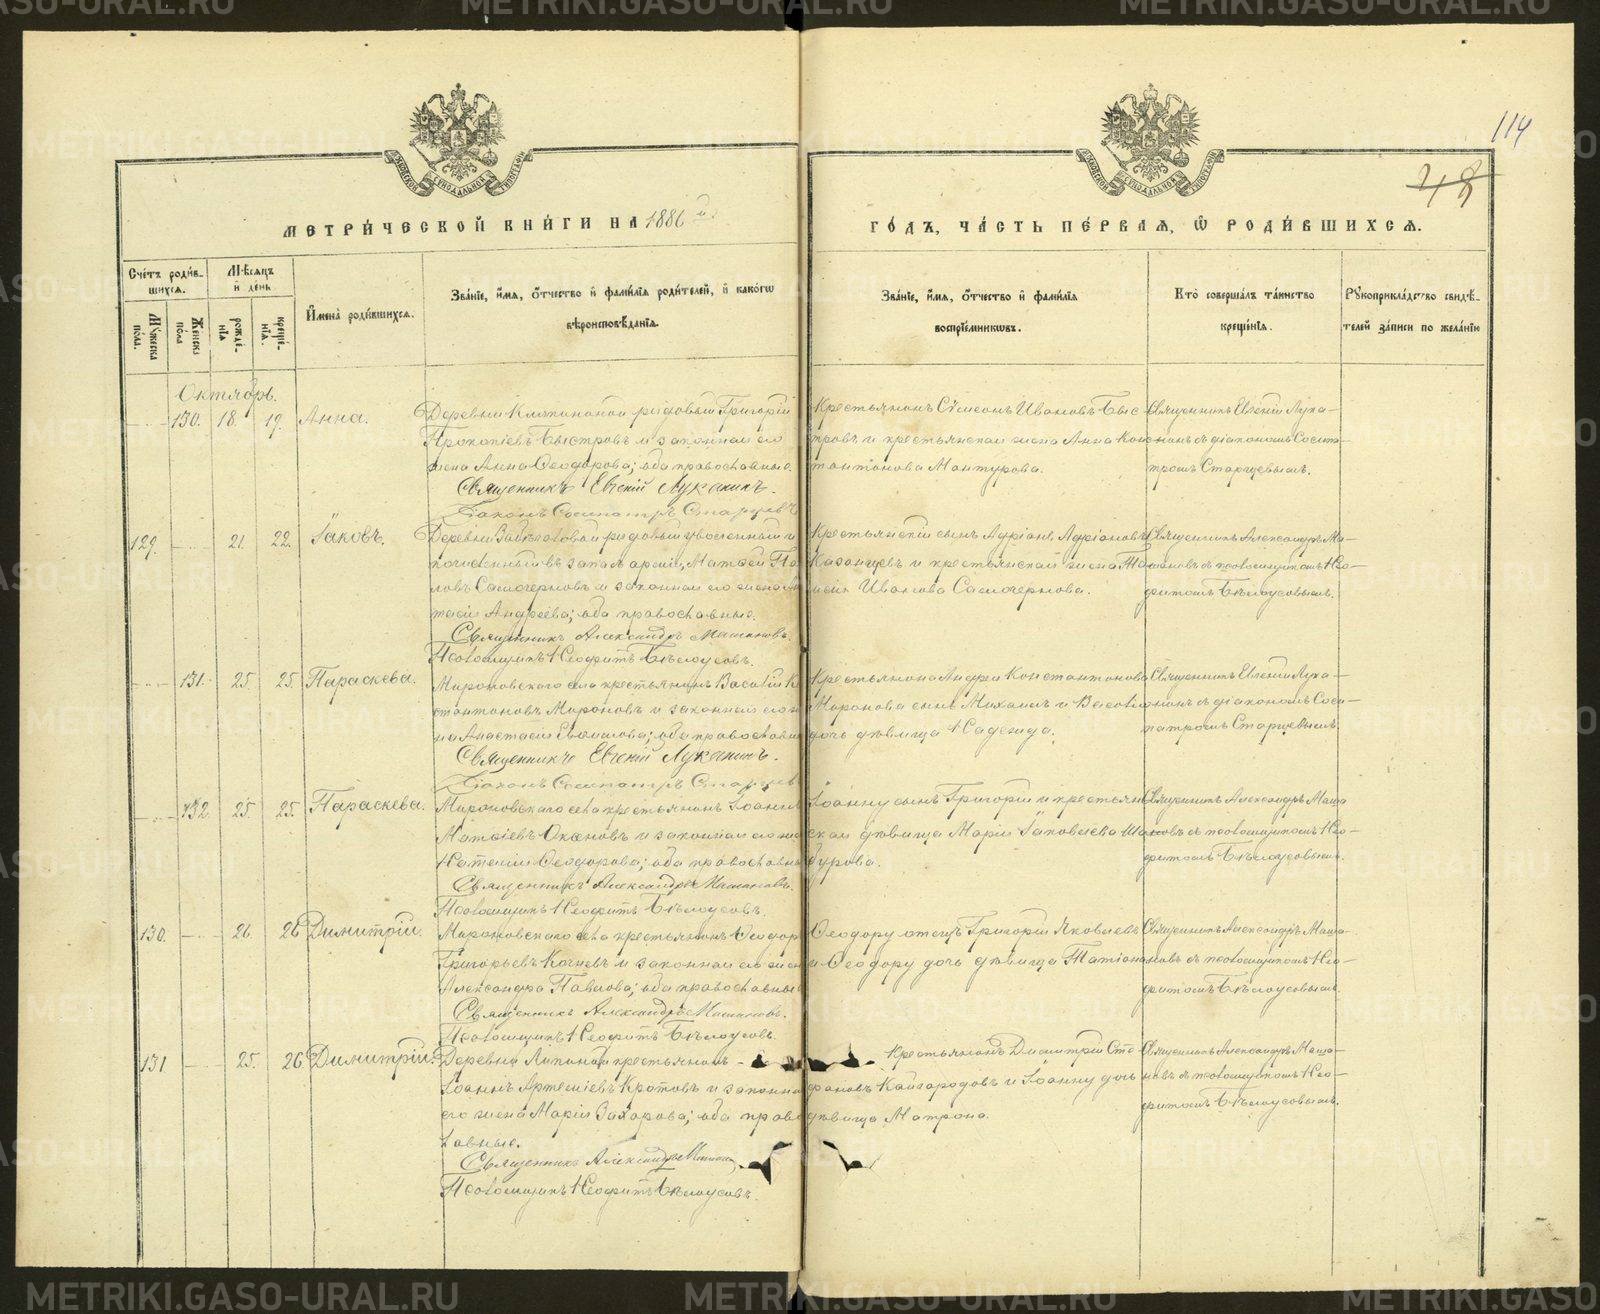 114
48
МЕТРИ́ЧЕСКОЙ КНИ́ГИ НА 1886 й
ГО́ДЪ, ЧА́СТЬ ПЕ́РВАЯ, Ѡ РОДИ́ВШИХСЯ.
Сче́тъ роди́вшихся.
Му́жеска по́ла.
Же́нска по́ла
Мѣ́сяцъ и де́нь
рожде́нїя
креще́нїя.
И҆мена̀ роди́вшихся.
Зва́нїе, и҆́мя, о҆́тчество и҆ фами́лїя роди́телей, и҆ како́гѡ
вѣроисповѣ́данїя.
Зва́нїе, и҆́мя, о҆́тчество и҆ фами́лїя
воспрїе́мникѡвъ.
Кто̀ соверша́лъ та́инство
креще́нїя.
Рꙋкоприкла́дство свидѣ́-
телей за́писи по жела́нїю
Октябрь.
130. 18. 19. Анна.
Деревни рядовый Григорій
Прокопіевъ Быстровъ и законная его
жена Анна Ѳеодорова; оба православные.
Священникъ Евгеній Луканинъ.
Діаконъ Сосипатръ Старцевъ
Крестьянинъ Сѵмеонъ Ивановъ Быс
тровъ и крестьянская жена Анна Конс
тантинова Мантурова.
Священникъ Евгеній Лука-
нинъ съ діакономъ Сосипа-
тромъ Старцевымъ.
129. 21. 22. Іаковъ.
Деревни рядовый уволенный и
въ запасъ арміи, Матѳей Па
ловъ Самочерновъ и законная его жена
тасія Андреева; оба православные.
Священникъ Александръ Машановъ.
Псаломщикъ Неофитъ Бѣлоусовъ.
Крестьянскій сынъ Адріанъ Адріановъ
Казанцевъ и крестьянская жена
Ивановна Самочернова.
Священникъ Александръ Ма-
шановъ съ псаломщикомъ Нео-
фитомъ Бѣлоусовымъ.
131. 25. 25. Параскева.
Мироновскаго села крестьянинъ Василій К
стантиновъ Мироновъ и законная его ж
на Анастасія; оба православны
Священникъ Евгеній Луканинъ.
Діаконъ Сосипатръ Старцевъ
Крестьянина Андрея Константинова
Миронова сынъ Михаилъ и
дочь дѣвица Надежда.
Священникъ Евгеній Лука-
нинъ съ діакономъ Соси-
патромъ Старцевымъ.
132. 25. 25. Параскева.
Мироновскаго села крестьянинъ Іоаннъ
Матѳіевъ и законная его же
Наталія Ѳеодорова; оба православны
Священникъ Александръ Машановъ.
Псаломщикъ Неофитъ Бѣлоусовъ.
Іоанну сынъ Григорій и крестьян
ская дѣвица Марія Іаковлева Ша
бурова.
Священникъ Александръ Маша
новъ съ псаломщикомъ Нео-
фитомъ Бѣлоусовымъ.
130. 26 26 Димитрій.
Мироновскаго села крестьянинъ Ѳеодоръ
Григорьевъ Кочневъ и законная его жен
Александра Павлова; оба православные
Священникъ Александръ Машановъ.
Псаломщикъ Неофитъ Бѣлоусовъ.
Ѳеодору отецъ Григорій Яковлевъ
и Ѳеодору дочь дѣвица Татіана
Священникъ Александръ Маша-
новъ съ псаломщикомъ Нео-
фитомъ Бѣлоусовымъ.
131 25. 26 Димитрій.
Деревни Липиной крестьянинъ
Іоаннъ Артеміевъ Кротовъ и законна
его жена Марія Захарова; оба право
славные.
Священникъ Александръ Машано
Псаломщикъ Неофитъ Бѣлоусовъ.
Крестьянинъ Димитрій Сте
фановъ Кайгородовъ и Іоанну дочь
дѣвица Матрона.
Священникъ Александръ Маша-
новъ съ псаломщикомъ Нео-
фитомъ Бѣлоусовымъ.
METRIKI.GASO-URAL.RU